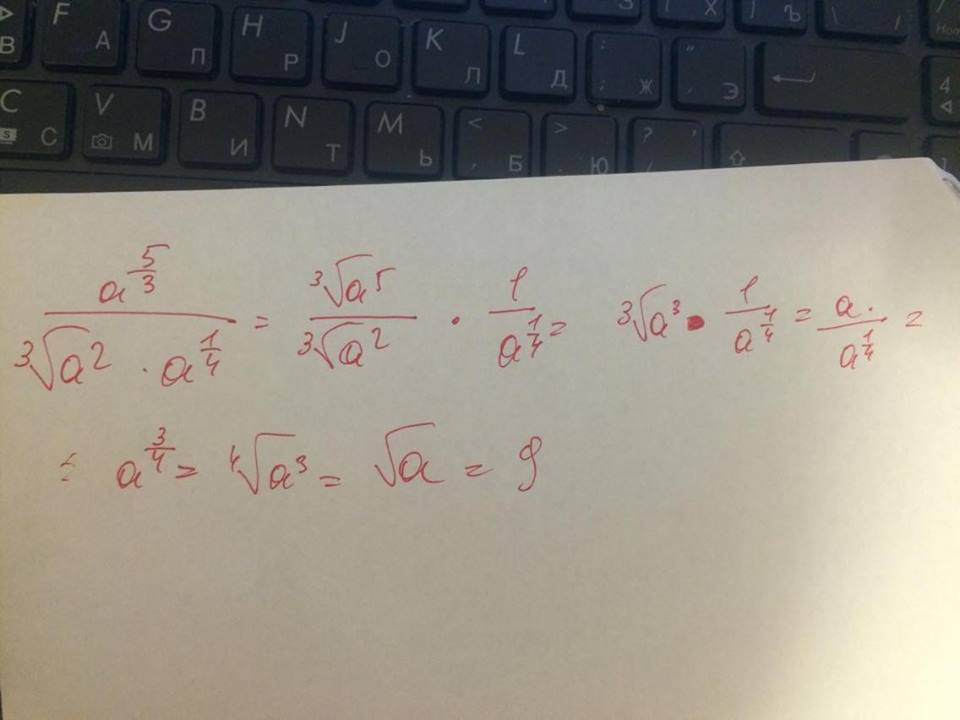 F А G П H Р J О K Л L Д : ; Ж " ' Э 4
В C S С V М B И N Т M Ь < , Б > Ю ? /
\frac{a^{\frac{5}{3}}}{\sqrt[3]{a^2} \cdot a^{\frac{1}{4}}} = \frac{\sqrt[3]{a^5}}{\sqrt[3]{a^2}} \cdot \frac{1}{a^{\frac{1}{4}}} = \sqrt[3]{a^3} \cdot \frac{1}{a^{\frac{1}{4}}} = \frac{a \cdot}{a^{\frac{1}{4}}} =
= a^{\frac{3}{4}} = \sqrt[4]{a^3} = \sqrt{a} = 9